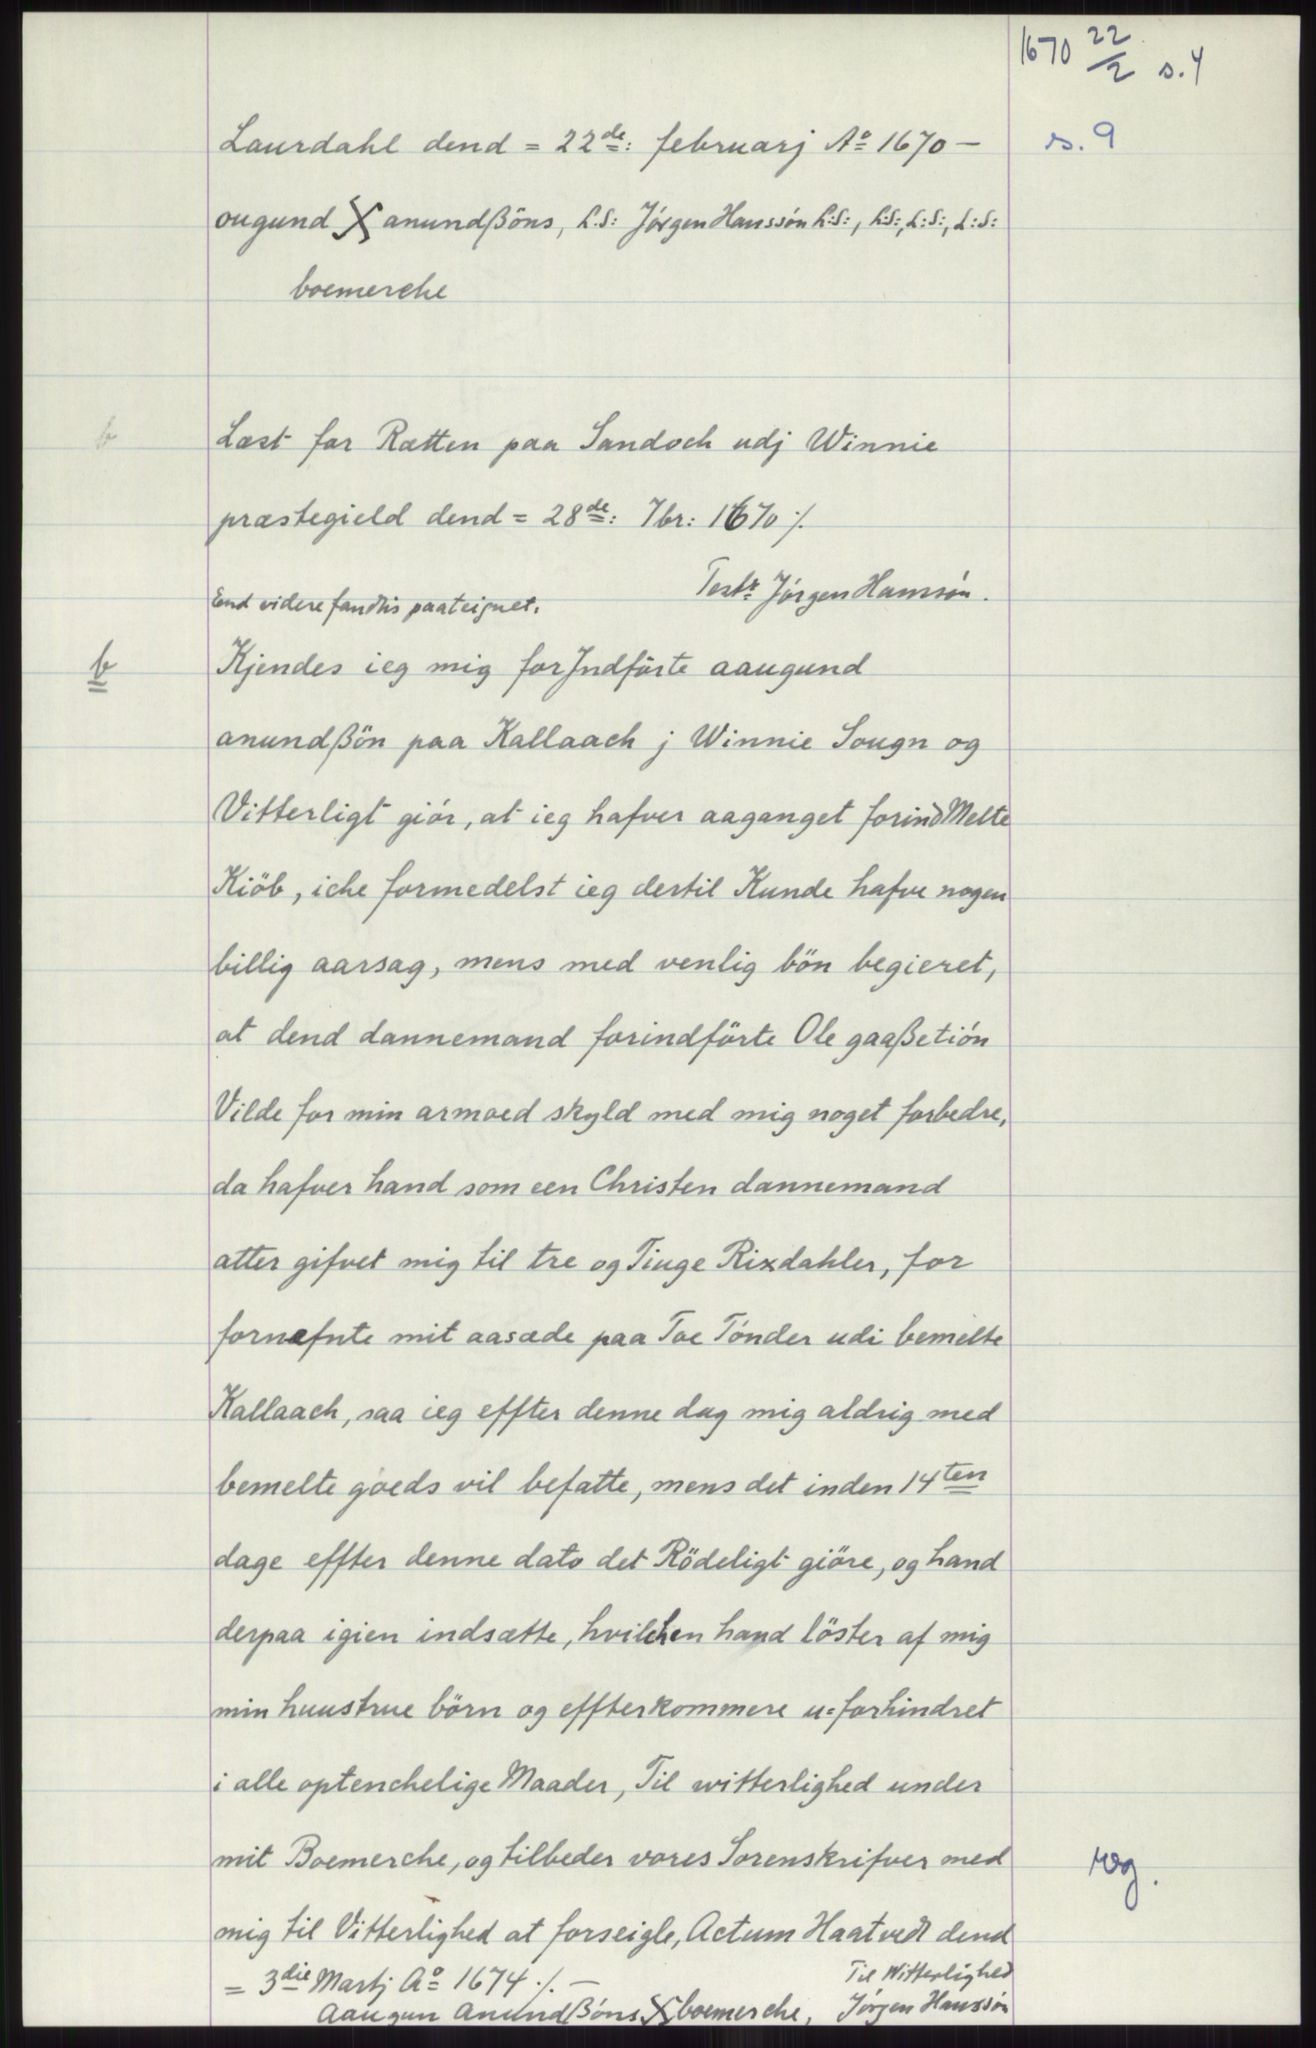 1670 22/2 s. 4
s. 9
Laurdahl dend = 22de: februarj Ao 1670 —
ougund X anundßöns, L.S: Jörgen Hanssön L:S:, L:S:, L:S:, L:S:
boemerche
b
Læst for Rætten paa Sandoch udj Winnie
præstegield dend = 28de: 7br: 1670 ./.
Testr Jörgen Hanssön.
End videre fandtis paateignet.
b
Kjendes ieg mig forJndförte aaugund
anundßön paa Kallaach j Winnie Sougn og
Vitterligt giör, at ieg hafver aaganget forindMelte
Kiöb, iche formedelst ieg dertil Kunde hafve nogen
billig aarsag, mens med venlig bön begieret,
at dend dannemand forindförte Ole gaaßetiön
Vilde for min armoed skyld med mig noget forbedre,
da hafver hand som een Christen dannemand
atter gifvet mig til tre og Tiuge Rixdahler, for
fornæfnte mit aasæde paa Toe Tönder udi bemelte
Kallaach, saa ieg effter denne dag mig aldrig med
bemelte goeds vil befatte, mens det inden 14ten
dage effter denne dato det Rödeligt giöre, og hand
derpaa igien indsætte, hvilchen hand löster af mig
min huustrue börn og effterkommere u=forhindret
i alle optenchelige Maader, Til witterlighed under
mit Boemerche, og tilbeder vores Sorenskrifver med
reg.
mig til Vitterlighed at forseigle, Actum Haatvedt dend
= 3die Martj Ao 1674 ./. —
Til Witterlighed
Aaugun Anundßöns X boemerche, Jörgen Hanssön